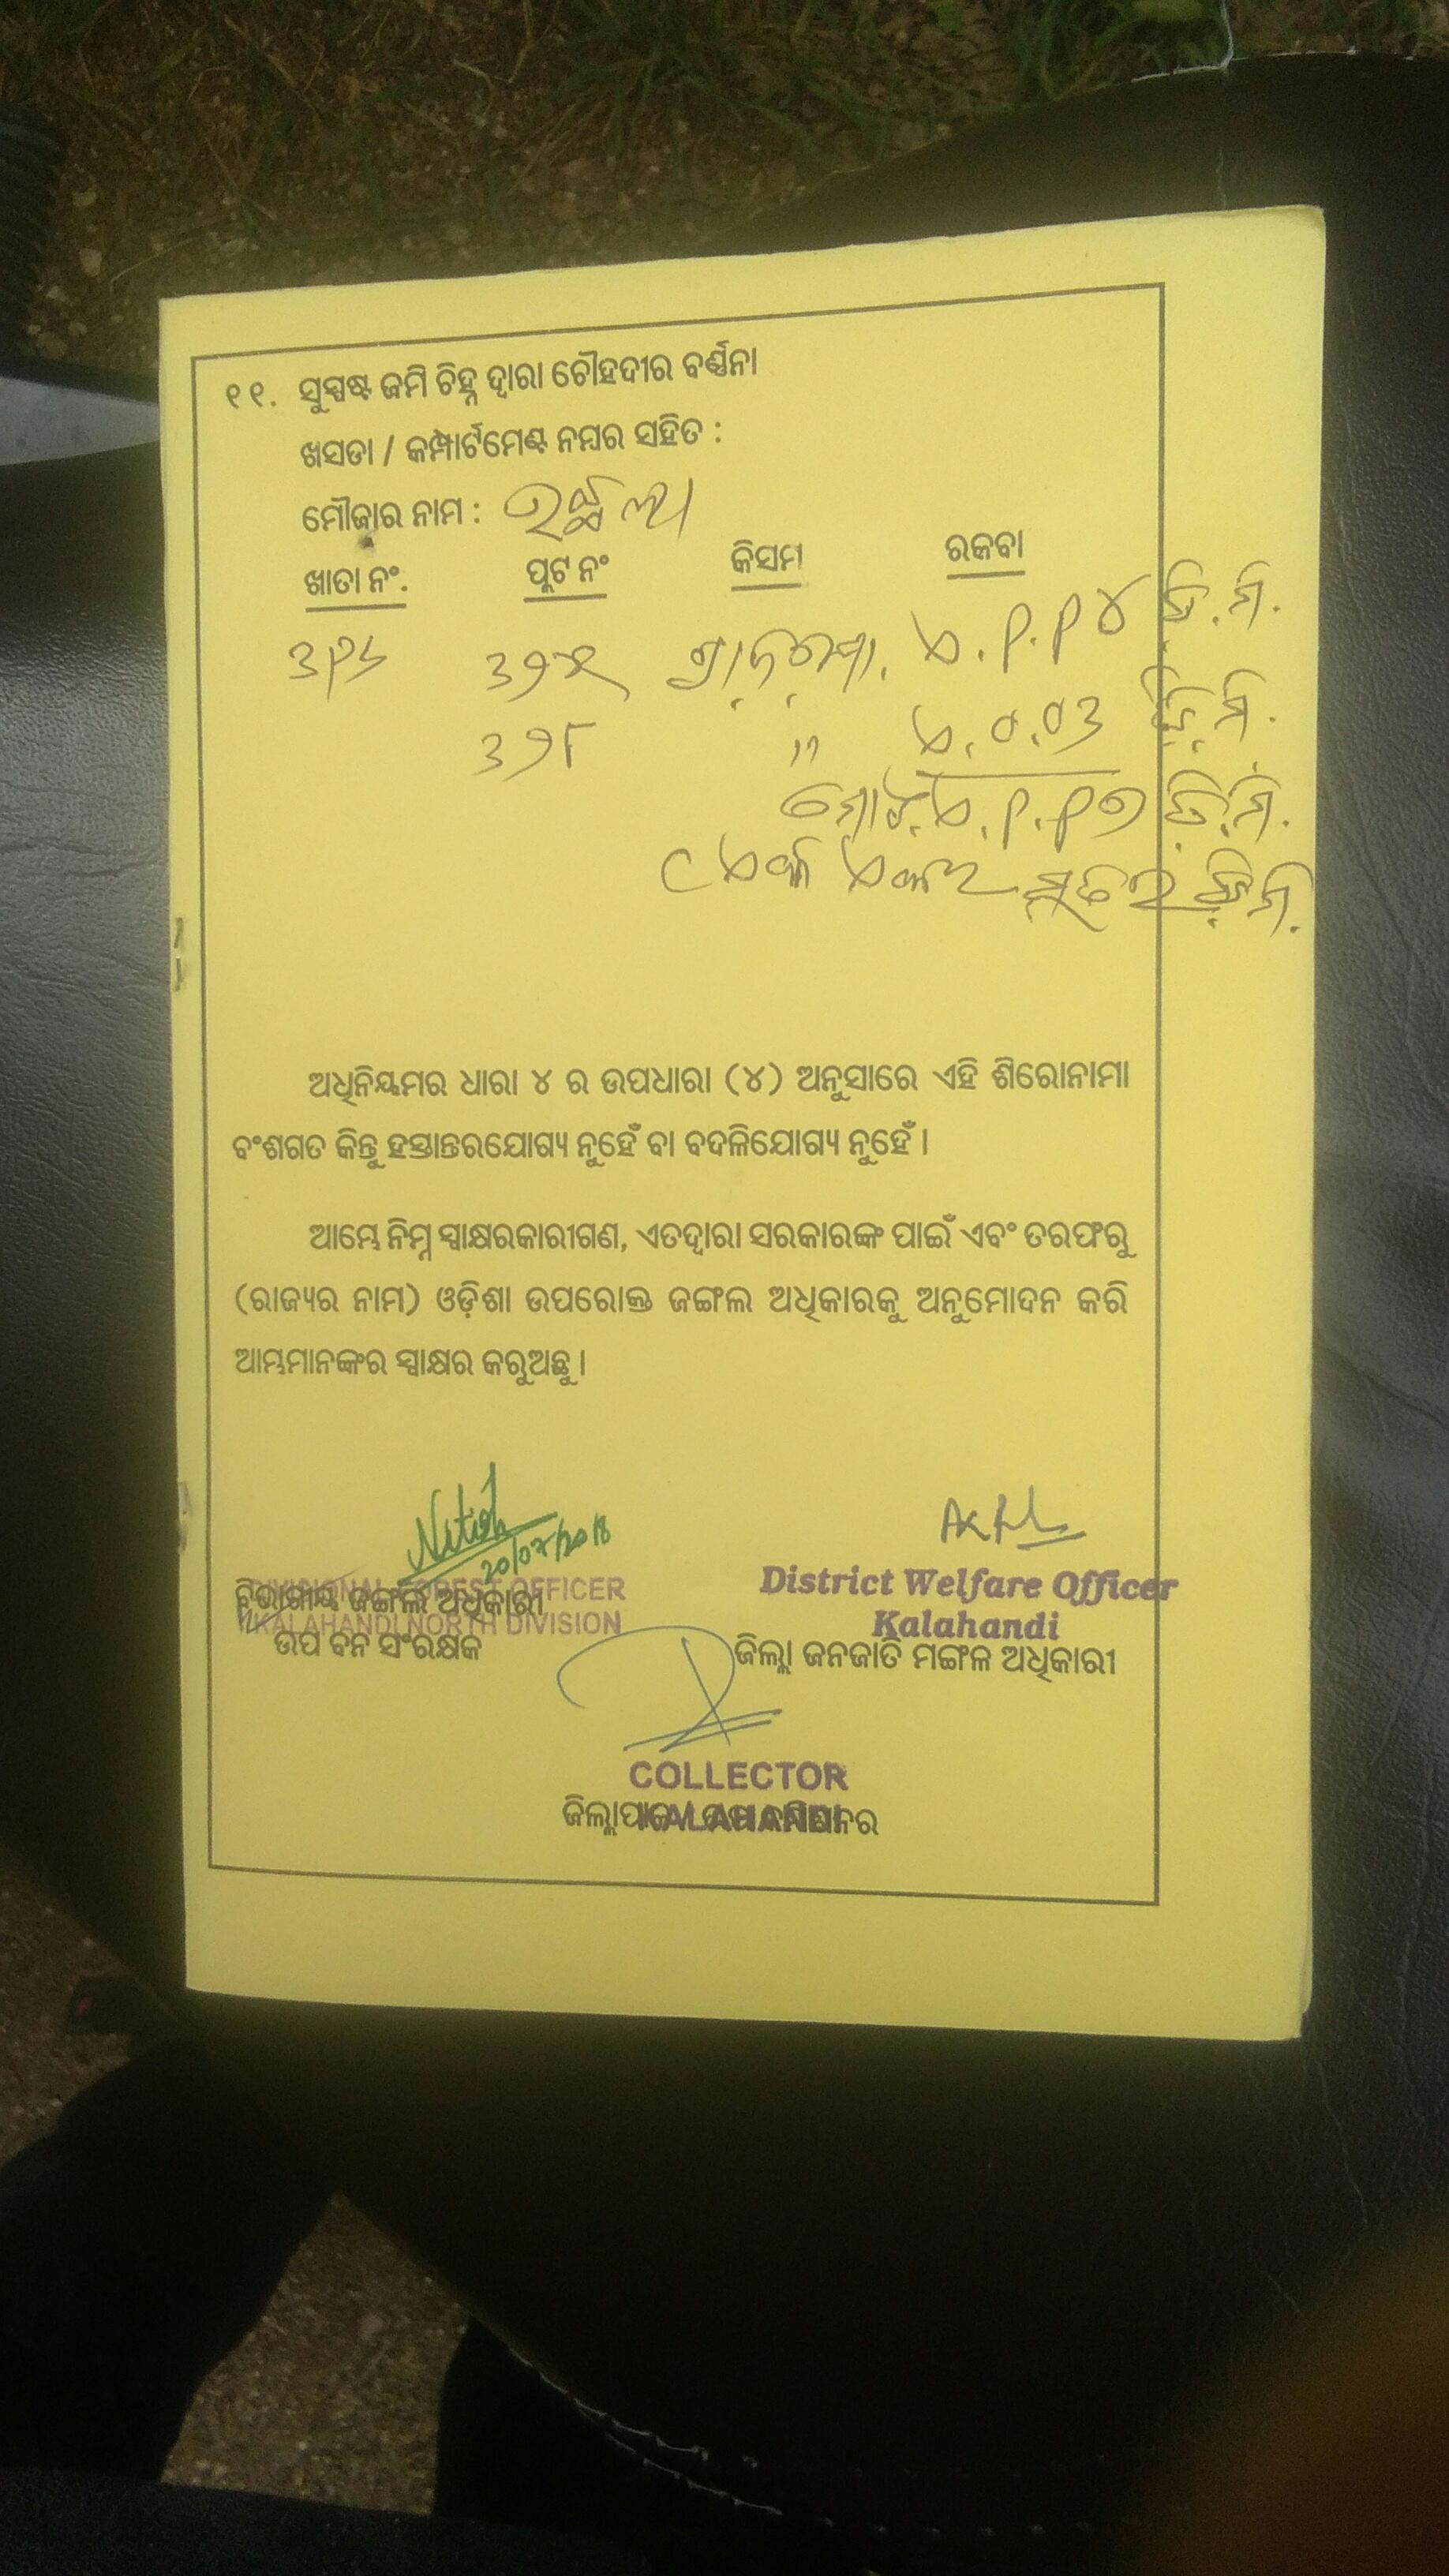 ୧୧. ସୁସ୍ପଷ୍ଟ ଜମି ଚିହ୍ନ ଦ୍ୱାରା ଚୌହଦୀର ବର୍ଣ୍ଣନା
ଖସଡା / କମ୍ପାର୍ଟମେଣ୍ଟ ନମ୍ବର ସହିତ :
ମୌଜାର ନାମ :
ଖାତା ନଂ. ପ୍ଲଟ ନଂ କିସମ ରକବା
ଏ.୧.୧୪ ଡି.ମି.
୩୨୮ " ଏ.୦.୦୩ ଡି.ମି.
ମୋଟ.ଏ.୧.୧୭ ଡି.ମି.
(ଏକ ଏକର ସତର ଡି.ମି.
ଅଧିନିୟମର ଧାରା ୪ ର ଉପଧାରା (୪) ଅନୁସାରେ ଏହି ଶିରୋନାମା
ବଂଶଗତ କିନ୍ତୁ ହସ୍ତାନ୍ତରଯୋଗ୍ୟ ନୁହେଁ ବା ବଦଳିଯୋଗ୍ୟ ନୁହେଁ ।
ଆମ୍ଭେ ନିମ୍ନ ସ୍ୱାକ୍ଷରକାରୀଗଣ, ଏତଦ୍ୱାରା ସରକାରଙ୍କ ପାଇଁ ଏବଂ ତରଫରୁ
(ରାଜ୍ୟର ନାମ) ଓଡ଼ିଶା ଉପରୋକ୍ତ ଜଙ୍ଗଲ ଅଧିକାରକୁ ଅନୁମୋଦନ କରି
ଆମ୍ଭମାନଙ୍କର ସ୍ୱାକ୍ଷର କରୁଅଛୁ ।
Nitish
20/07/2018
DIVISIONAL FOREST OFFICER
ବିଭାଗୀୟ ଜଙ୍ଗଲ ଅଧିକାରୀ
KALAHANDI NORTH DIVISION
ଉପ ବନ ସଂରକ୍ଷକ
District Welfare Officer
Kalahandi
ଜିଲ୍ଲା ଜନଜାତି ମଙ୍ଗଳ ଅଧିକାରୀ
COLLECTOR
KALAHANDI